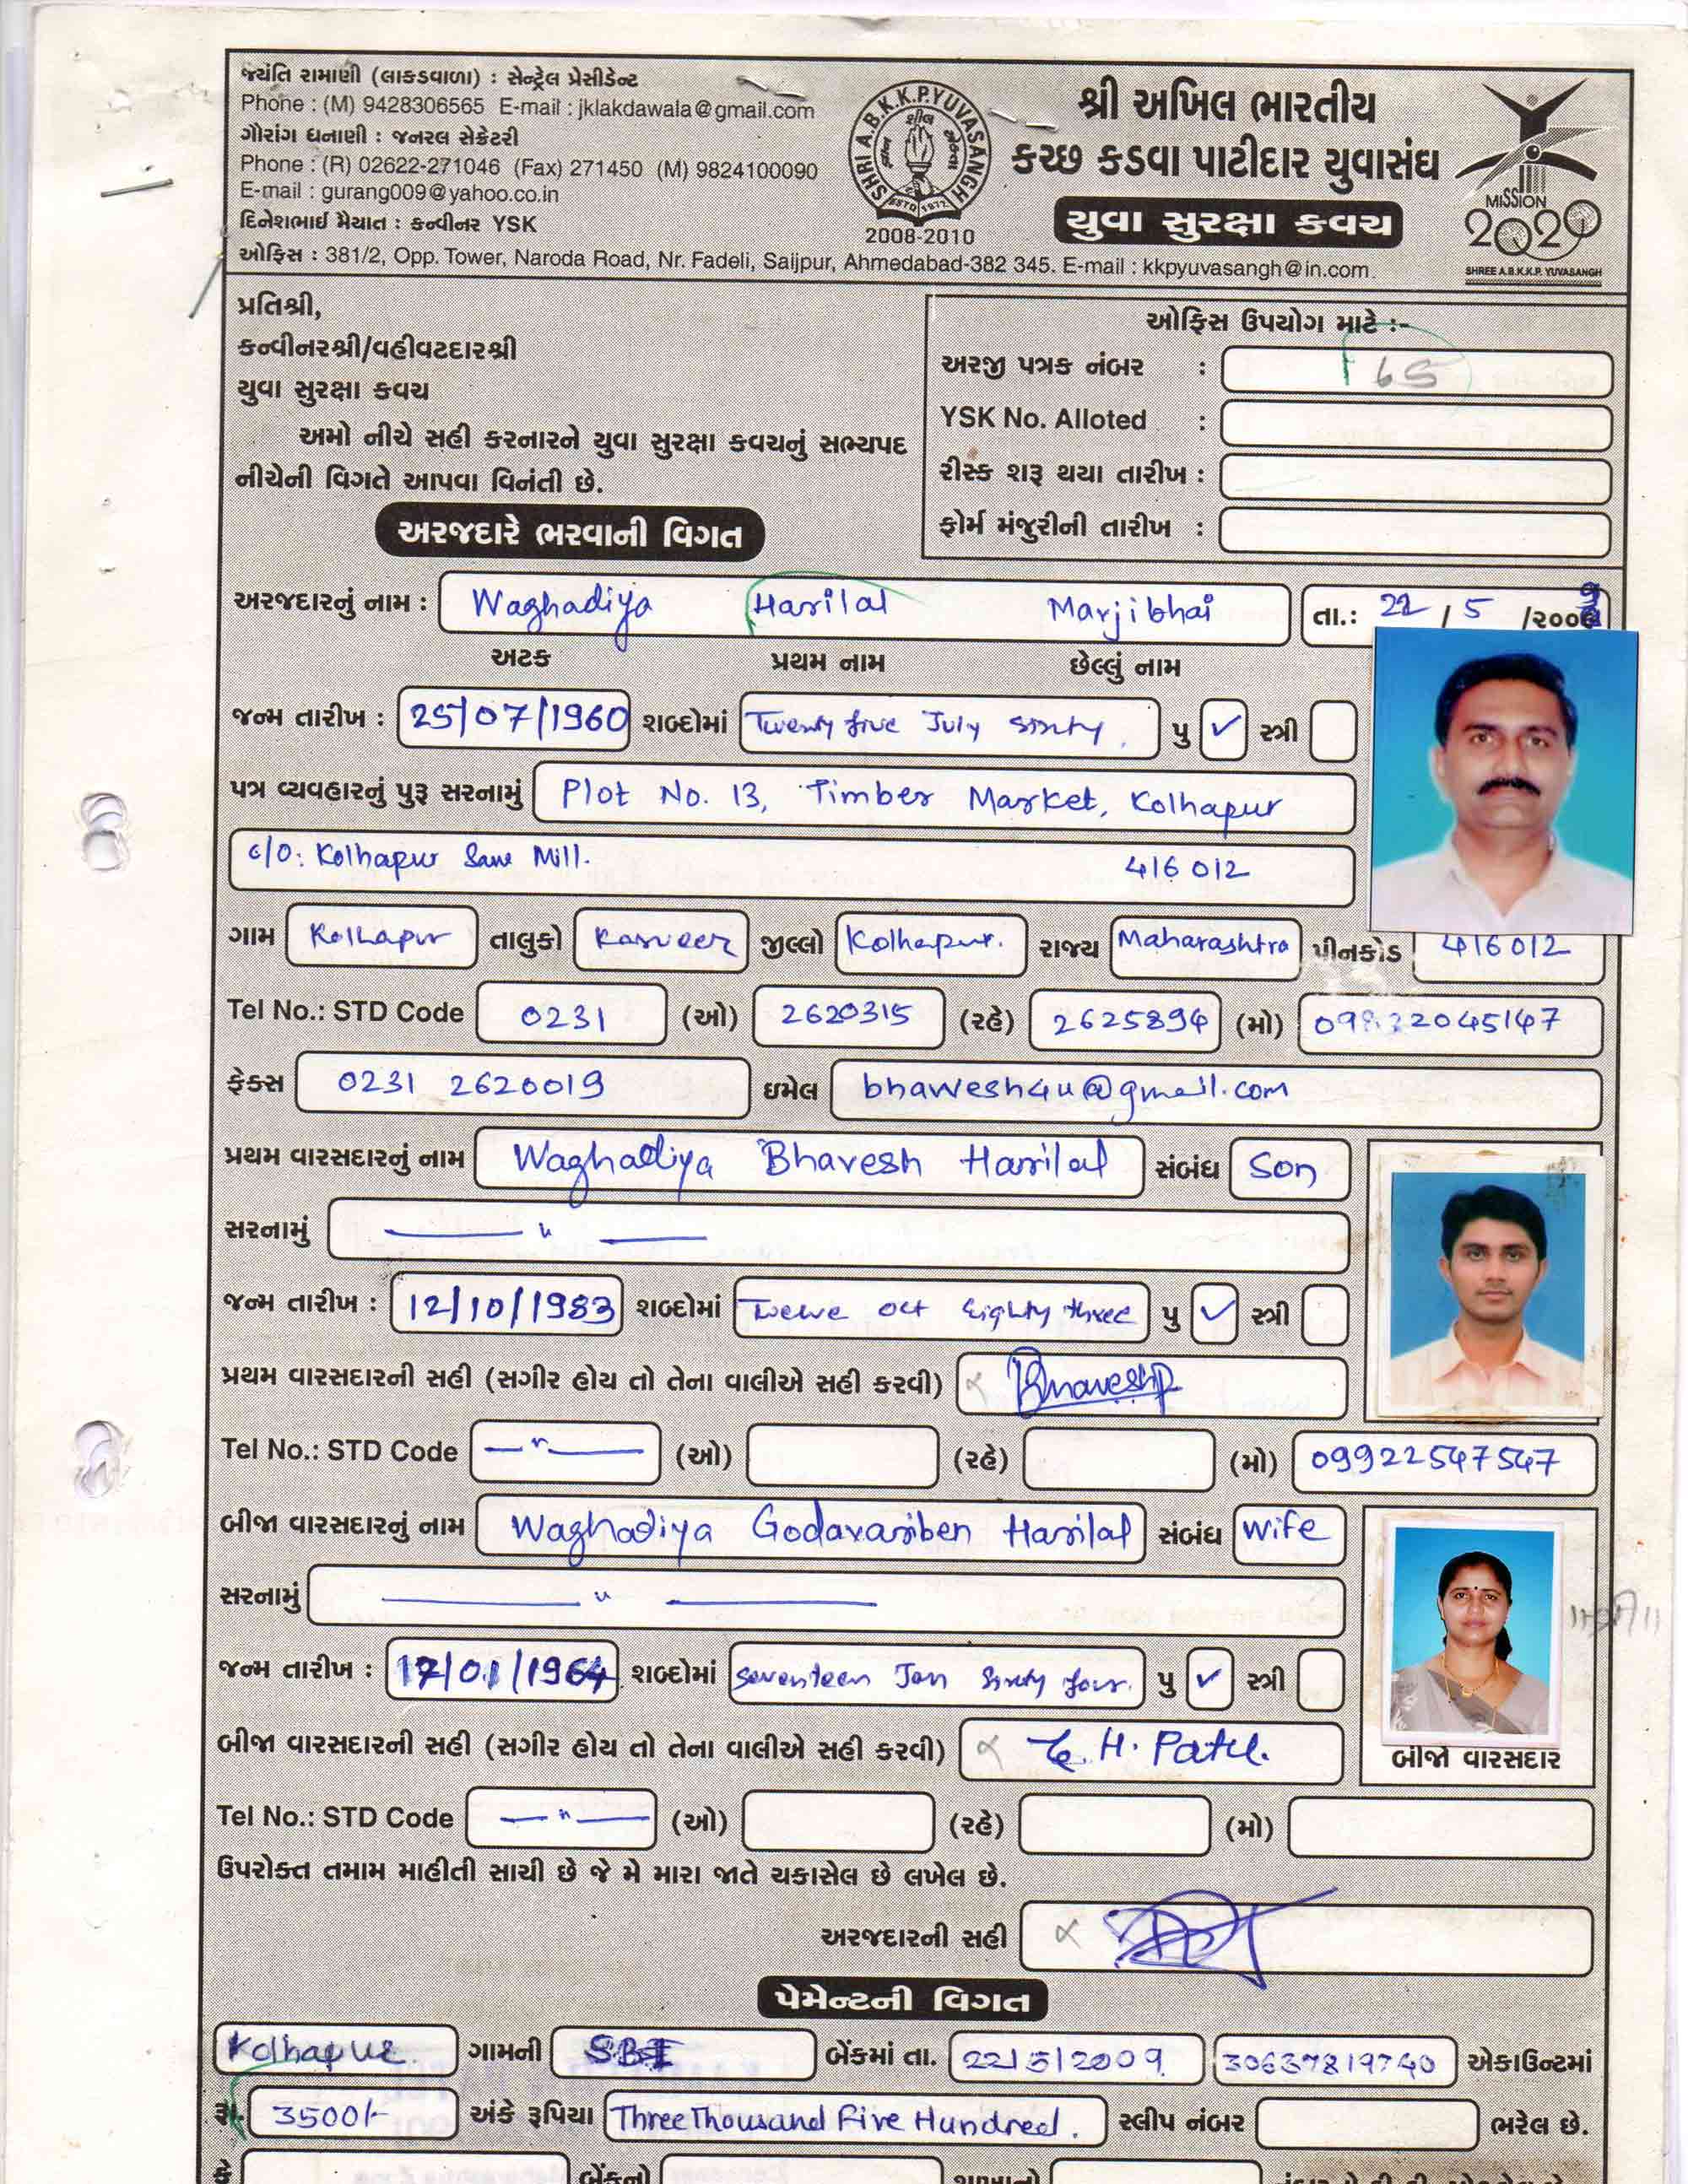 જ્યંતિ રામાણી (લાકડાવાળા) : સેન્ટ્રેલ પ્રેસીડેન્ટ
Phone : (M) 9428306565 E-mail : jklakdawala@gmail.com
ગૌરાંગ ધનાણી : જનરલ સેક્રેટરી
Phone : (R) 02622-271046 (Fax) 271450 (M) 9824100090
E-mail : gurang009@yahoo.co.in
દિનેશભાઈ મૈયાત : કન્વીનર YSK
ઓફિસ : 381/2, Opp. Tower, Naroda Road, Nr. Fadeli, Saijpur, Ahmedabad-382 345. E-mail : kkpyuvasangh@in.com.
SHRI A.B.K.K.P. YUVASANGH
ESTD 1972
2008-2010
શ્રી અખિલ ભારતીય
કચ્છ કડવા પાટીદાર યુવાસંઘ
યુવા સુરક્ષા કવચ
MISSION
2020
SHREE A.B.K.K.P. YUVASANGH
પ્રતિશ્રી,
કન્વીનરશ્રી/વહીવટદારશ્રી
યુવા સુરક્ષા કવચ
અમો નીચે સહી કરનારને યુવા સુરક્ષા કવચનું સભ્યપદ
નીચેની વિગતે આપવા વિનંતી છે.
ઓફિસ ઉપયોગ માટે :-
અરજી પત્રક નંબર : 165
YSK No. Alloted :
રીસ્ક શરૂ થયા તારીખ :
ફોર્મ મંજુરીની તારીખ :
અરજદારે ભરવાની વિગત
અરજદારનું નામ : Waghadiya Harilal Marjibhai તા.: 22 / 5 /૨૦૦૯
અટક પ્રથમ નામ છેલ્લું નામ
જન્મ તારીખ : 25/07/1960 શબ્દોમાં Twenty five July sixty. પુ ✓ સ્ત્રી
પત્ર વ્યવહારનું પુરૂ સરનામું Plot No. 13, Timber Market, Kolhapur
c/o: Kolhapur Saw Mill. 416 012
ગામ Kolhapur તાલુકો Karveer જીલ્લો Kolhapur. રાજ્ય Maharashtra પીનકોડ 416012
Tel No.: STD Code 0231 (ઓ) 2620315 (રહે) 2625894 (મો)
ફેક્સ 0231 2620019 ઇમેલ bhawesh4u@gmail.com
પ્રથમ વારસદારનું નામ Waghadiya Bhavesh Harilal સંબંધ Son
સરનામું — " —
જન્મ તારીખ : 12/10/1983 શબ્દોમાં Twelve oct Eighty three પુ ✓ સ્ત્રી
પ્રથમ વારસદારની સહી (સગીર હોય તો તેના વાલીએ સહી કરવી) Bhavesh
Tel No.: STD Code — " — (ઓ) (રહે) (મો) 09922547547
બીજા વારસદારનું નામ Waghadiya Godavariben Harilal સંબંધ wife
સરનામું — " —
જન્મ તારીખ : 17/01/1964 શબ્દોમાં Seventeen Jan Sixty four. પુ ✓ સ્ત્રી
બીજા વારસદારની સહી (સગીર હોય તો તેના વાલીએ સહી કરવી) G.H. Patel.
બીજો વારસદાર
Tel No.: STD Code — " — (ઓ) (રહે) (મો)
ઉપરોક્ત તમામ માહીતી સાચી છે જે મે મારા જાતે ચકાસેલ છે લખેલ છે.
અરજદારની સહી
પેમેન્ટની વિગત
Kolhapur ગામની SBI બેંકમાં તા. 22/5/2009 30637819740 એકાઉન્ટમાં
રૂા. 3500/- અંકે રૂપિયા Three Thousand Five Hundred. સ્લીપ નંબર ભરેલ છે.